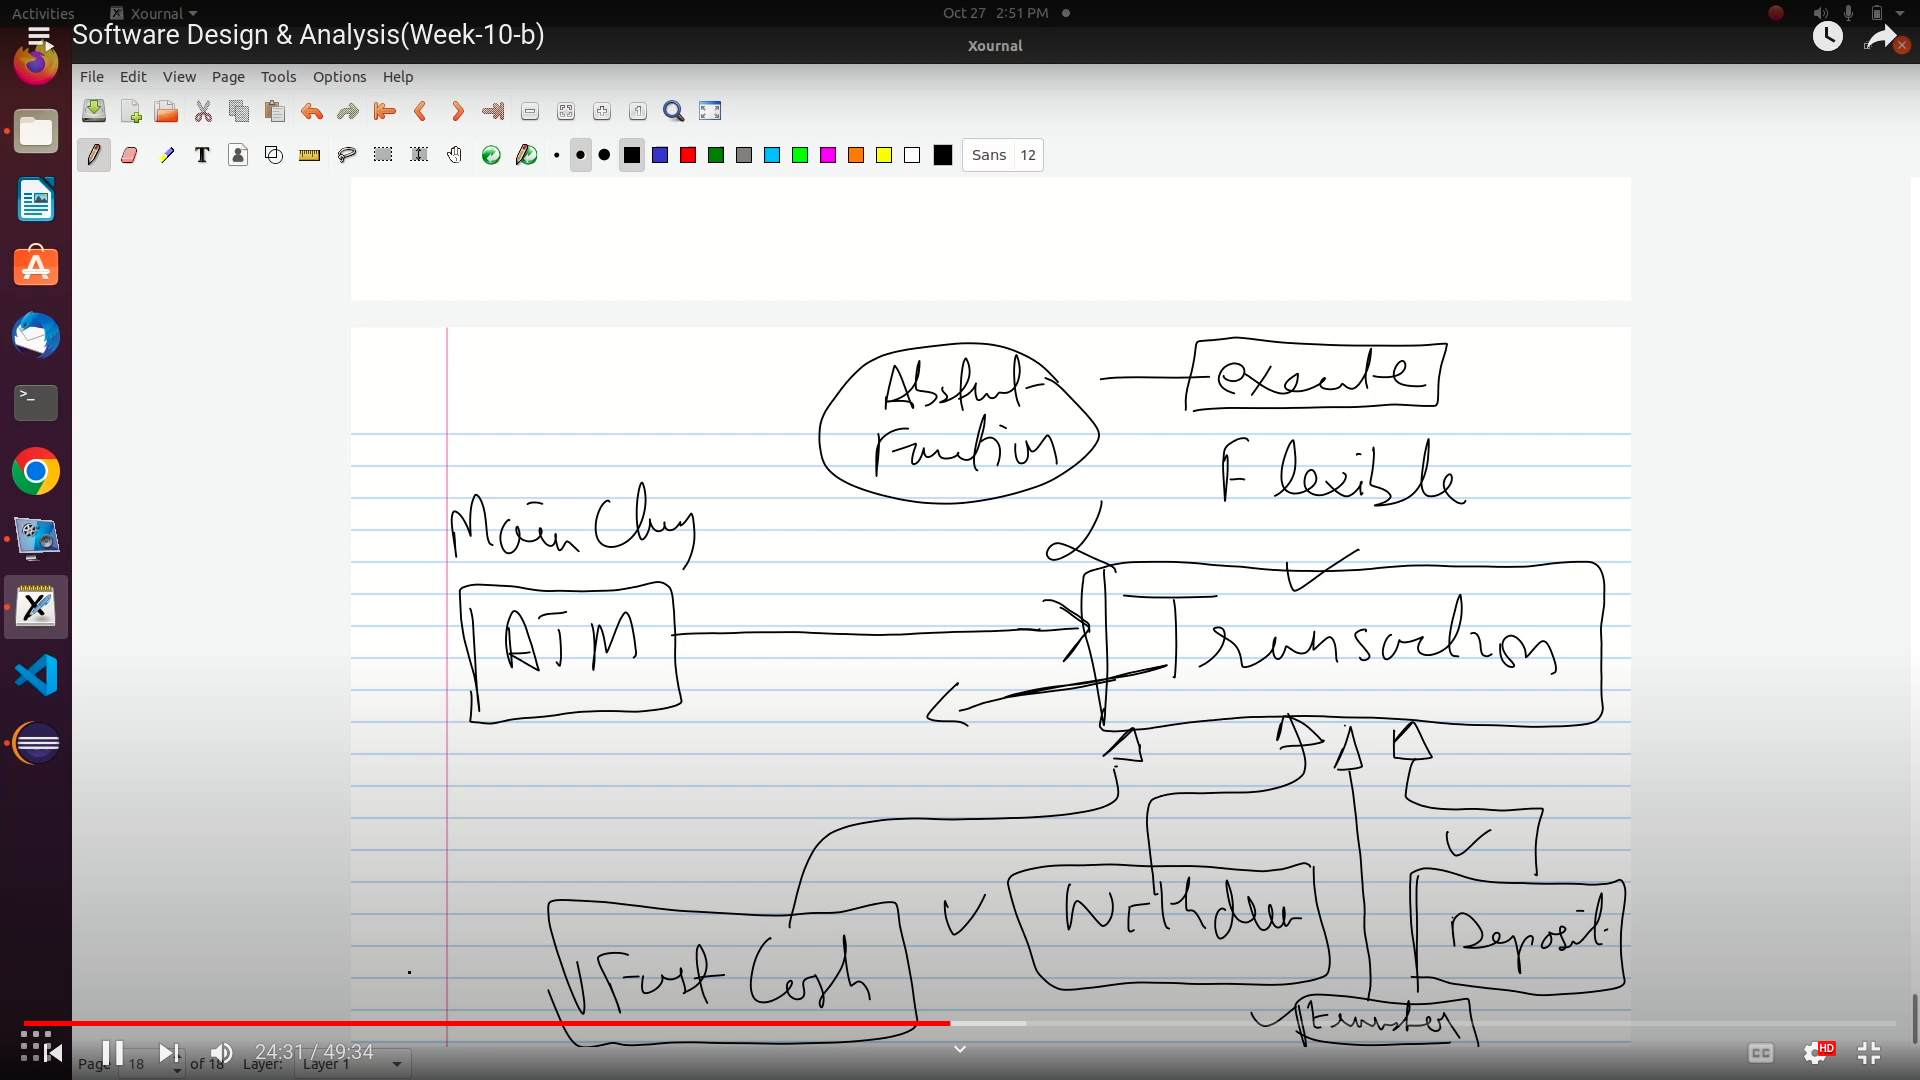 Activities Xournal Oct 27 2:51 PM
Software Design & Analysis(Week-10-b)
Xournal
File Edit View Page Tools Options Help
Sans 12
execute
Function
Flexible
Main
ATM
Transaction
Withdraw
Deposit
Fast Cash
24:31 / 49:34
HD
Page 18 of 18 Layer: Layer 1